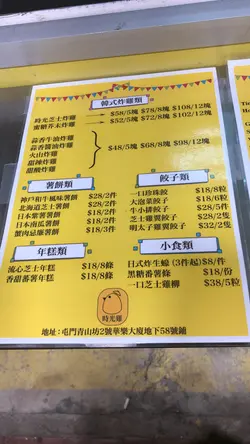 韓式炸雞類
時光芝士炸雞
蜜糖芥末炸雞
$58/5塊 $78/8塊 $108/12塊
$52/5塊 $72/8塊 $102/12塊
蒜香牛油炸雞
蒜香醬油炸雞
火山炸雞
甜辣炸雞
甜酸炸雞
$48/5塊 $68/8塊 $98/12塊
薯餅類
神戶和牛風味薯餅 $28/2件
北海道芝士薯餅 $28/2件
日本紫薯薯餅 $18/2件
日本南瓜薯餅 $18/2件
蟹肉忌廉薯餅 $18/3件
餃子類
一口珍珠餃 $18/8粒
大泡菜餃子 $18/6粒
牛小排餃子 $28/2隻
芝士雞翼餃子 $28/2隻
明太子雞翼餃子 $32/2隻
年糕類
流心芝士年糕 $18/8條
香甜蕃薯年糕 $18/8條
小食類
日式炸生蠔 (3件起)$8/件
黑糖番薯條 $18/份
一口芝士雞柳 $38/5粒
時光雞
地址: 屯門青山坊2號華樂大廈地下58號鋪